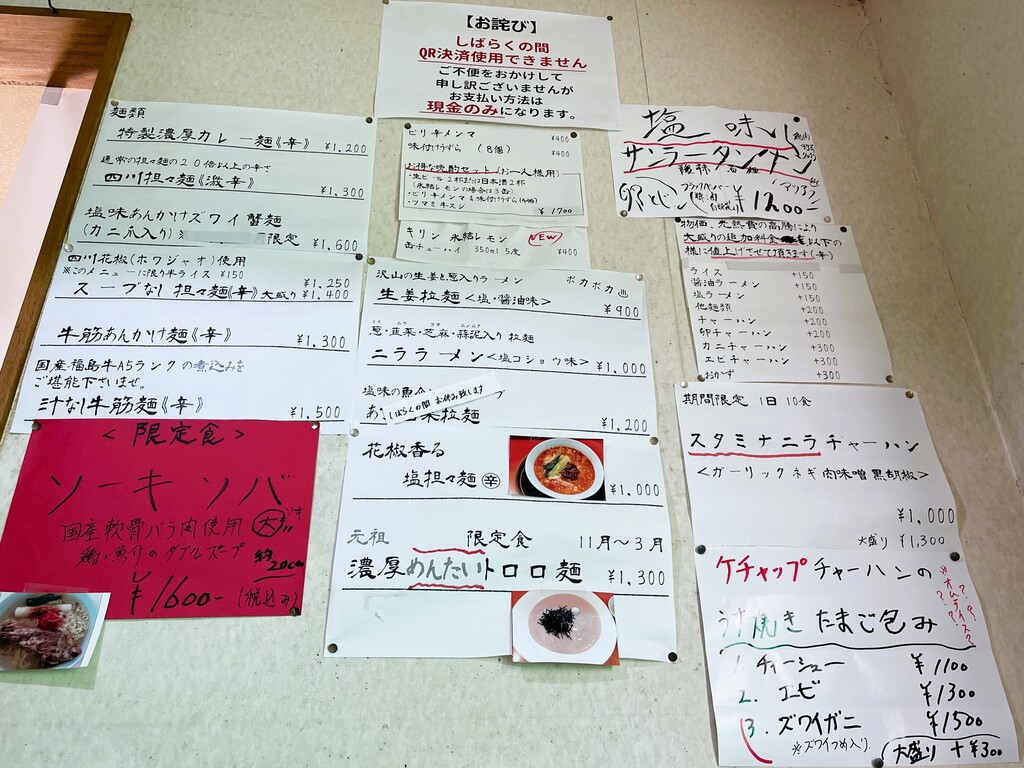 【お詫び】
しばらくの間
QR決済使用できません
ご不便をおかけして
申し訳ございませんが
お支払い方法は
現金のみになります。
麺類
特製濃厚カレー麺《辛》 ¥1,200
通常の担々麺の20倍以上の辛さ
四川担々麺《激辛》 ¥1,300
塩味あんかけズワイ蟹麺
(カニ爪入り) 限定 ¥1,600
四川花椒(ホワジャオ)使用
※このメニューに限り半ライス ¥150
¥1,250
スープなし担々麺《辛》大盛り ¥1,400
牛筋あんかけ麺《辛》 ¥1,300
国産福島牛A5ランクの煮込みを
ご堪能下さいませ。
汁なし牛筋麺《辛》 ¥1,500
<限定食>
ソーキソバ
国産軟骨バラ肉使用 大
鶏・魚介のダブルスープ 約20cm
¥1600- (税込み)
ピリ辛メンマ ¥400
味付けうずら (8個) ¥400
お得な晩酌セット(お一人様用)
・生ビール2杯または日本酒2杯
(氷結レモンの場合は3缶)
・ピリ辛メンマ&味付けうずら(4個)
・ツマミキスジ
¥1700
キリン 氷結レモン NEW
缶チューハイ 350ml 5度 ¥400
沢山の生姜と葱入りラーメン ポカポカ
生姜拉麺<塩・醤油味> ¥900
葱・韮菜・芝麻・蒜泥入り拉麺
ニララーメン<塩コショウ味> ¥1,000
塩味の魚介
しばらくの間 お休み致します
拉麺 ¥1,200
花椒香る
塩担々麺 辛 ¥1,000
元祖 限定食 11月〜3月
濃厚めんたいトロロ麺 ¥1,300
塩味
サンラータンメン
卵とじ
¥1200
物価、光熱費の高騰により
大盛りの追加料金を以下の
様に値上げさせて頂きます
ライス +150
醤油ラーメン +150
塩ラーメン +150
他麺類 +200
チャーハン +200
卵チャーハン +200
カニチャーハン +300
エビチャーハン +300
おかず +300
期間限定 1日10食
スタミナニラチャーハン
<ガーリックネギ肉味噌黒胡椒>
¥1,000
大盛り ¥1,300
ケチャップチャーハンの
うす焼きたまご包み
※オムライス???
1. チャーシュー ¥1100
2. エビ ¥1300
3. ズワイガニ ¥1500
※ズワイつめ入り
大盛り +¥300